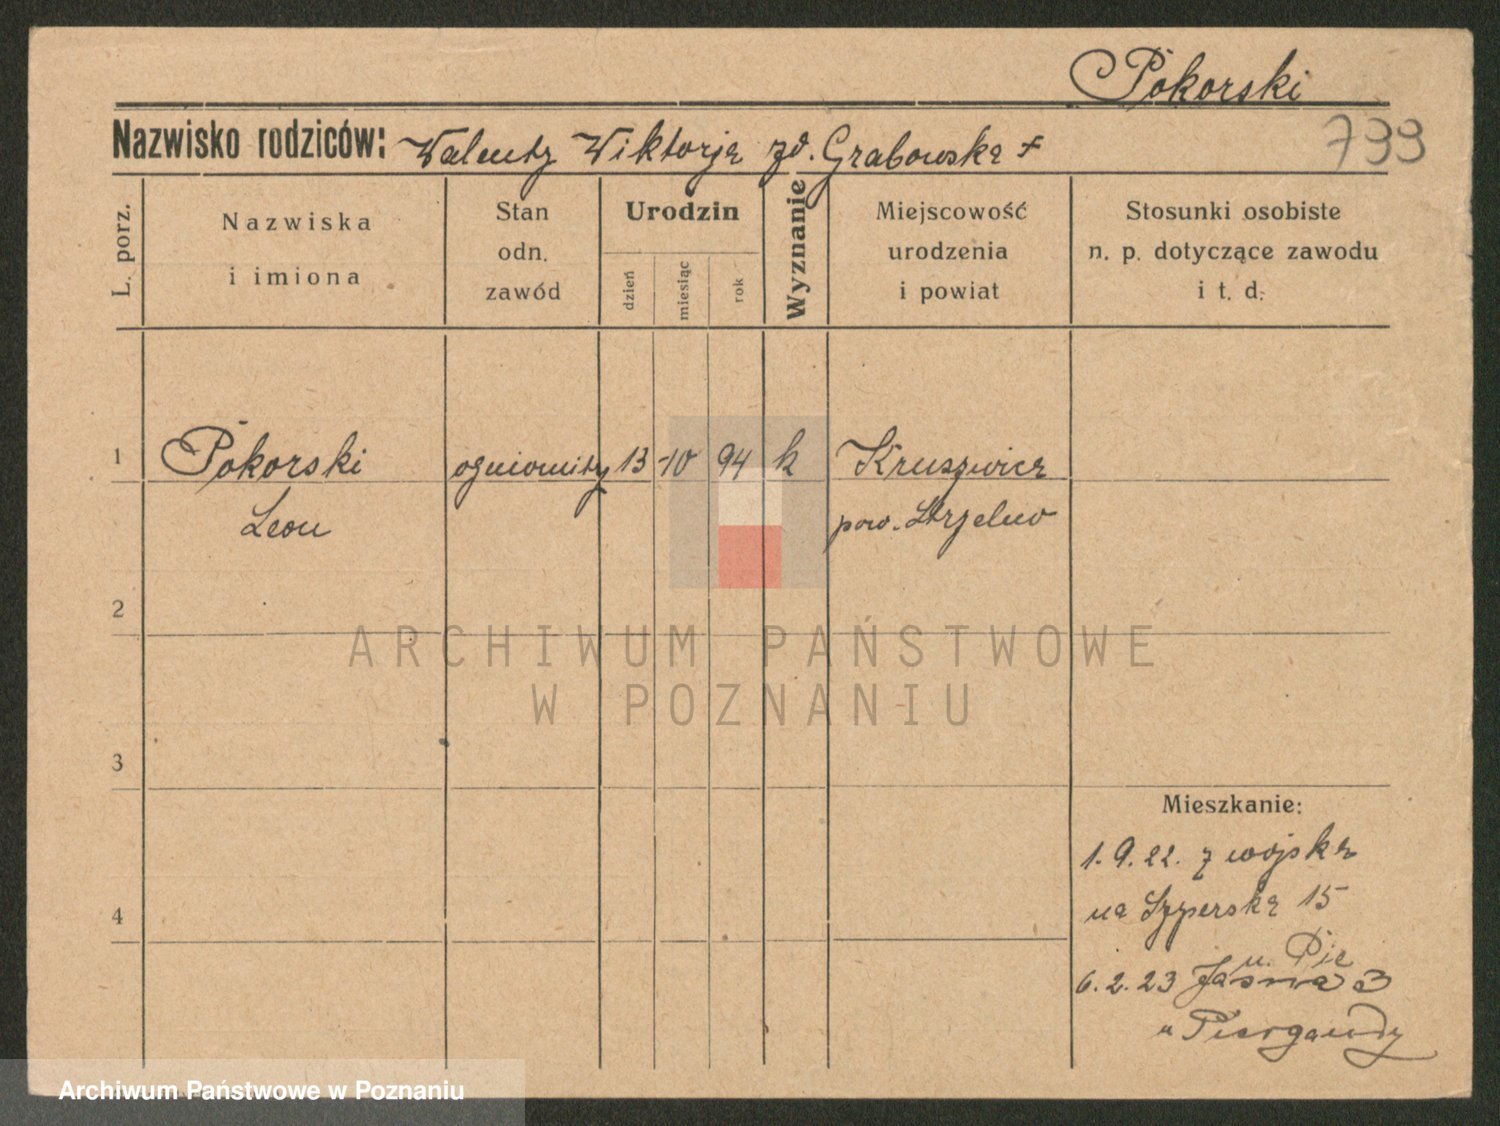 Pokorski
799
Nazwisko rodziców: Walenty Wiktorja zd. Grabowska +
L. porz.
Nazwiska
i imiona
Stan
odn.
zawód
Urodzin
dzień
miesiąc
rok
Wyznanie
Miejscowość
urodzenia
i powiat
Stosunki osobiste
n. p. dotyczące zawodu
i t. d.
1 Pokorski ogniomistrz 13 10 94 k Kruszwica
Leon pow. Strzelno
2
3
4
Mieszkanie:
1. 9. 22. z wojska
na Szyperska 15
u. Pie
6. 2. 23 Jasna 3
u
ARCHIWUM PAŃSTWOWE
W POZNANIU
Archiwum Państwowe w Poznaniu